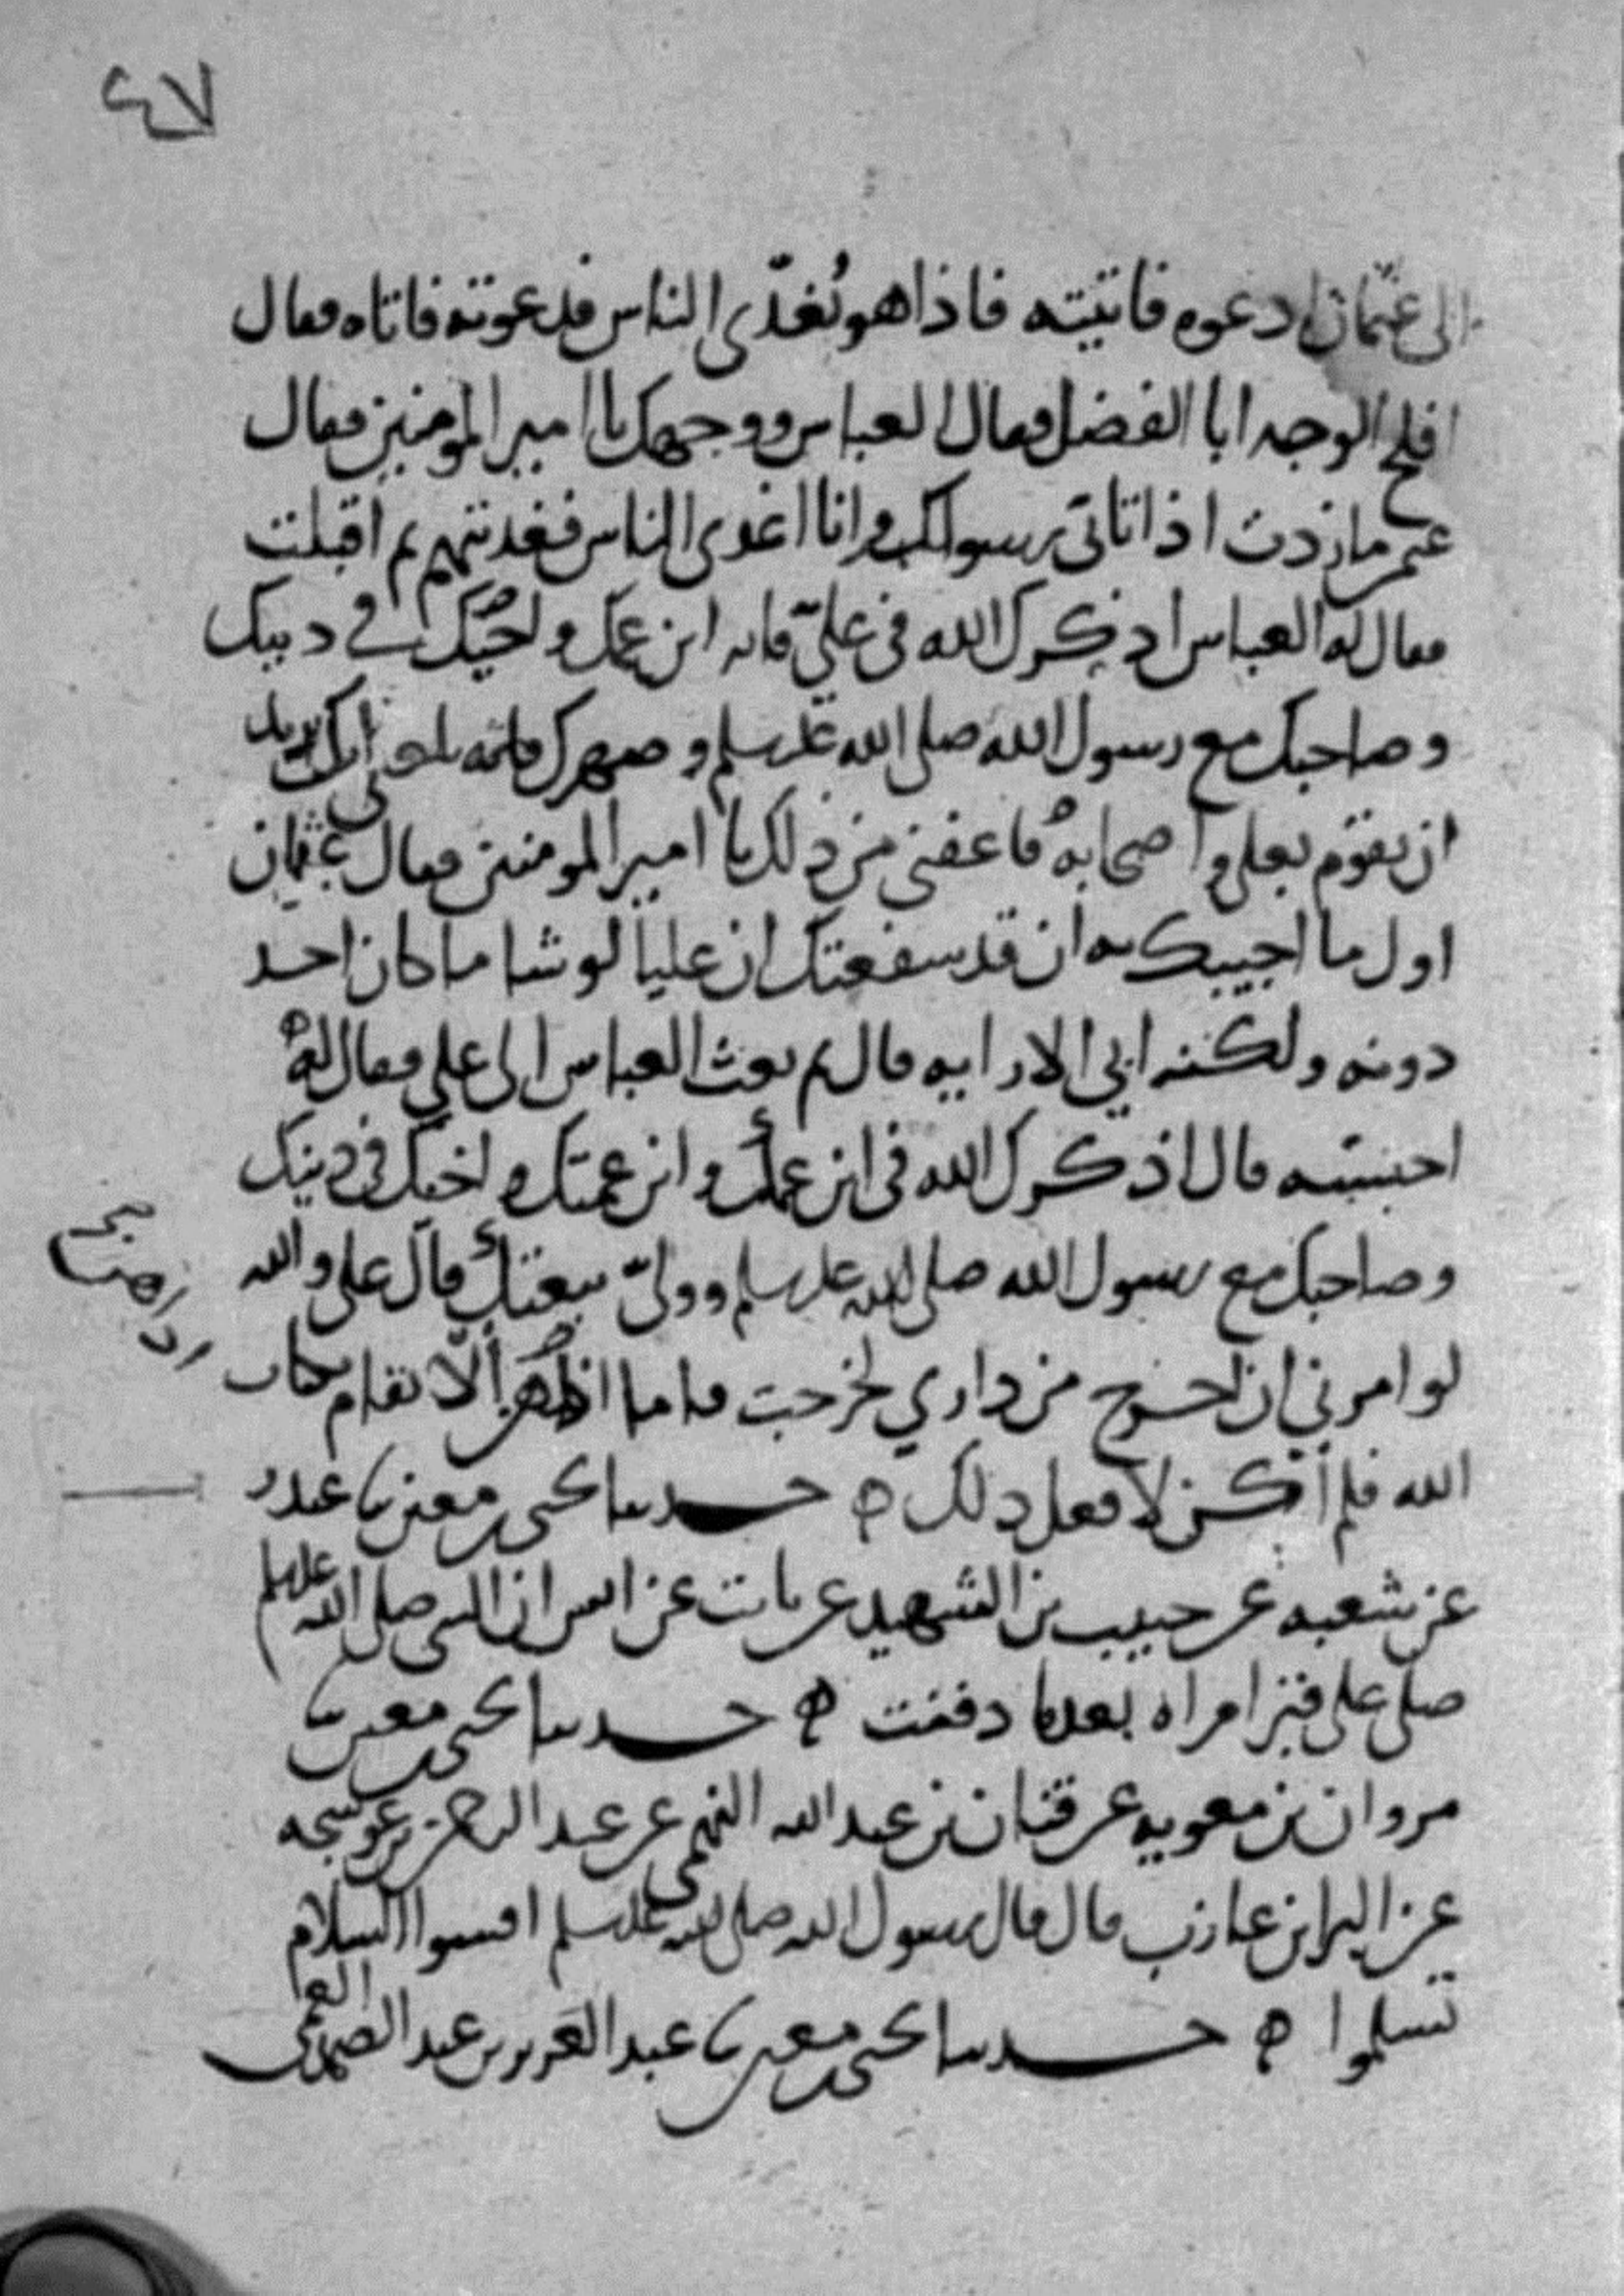 ٤٧
الى عثمان ادعوه فاتيته فاذا هو يُغدّى الناس فدعوته فاتاه فقال
افلح الوجه ابا الفضل فقال العباس ووجهك يا امير المومنين فقال
ما زدت اذ اتانى رسولك وانا اغدى الناس فغديتهم ثم اقبلت
فقال له العباس اذكرك الله فى علىّ فانه ابن عمك واخيك فى دينك
وصاحبك مع رسول الله صلى الله عليه وسلم وصهرك فانه بلغنى انك تريد
ان تقوم بعلى واصحابه فاعفنى من ذلك يا امير المومنين فقال عثمان
اول ما اجيبك به ان قد شفعتك ان عليا لو شا ما كان احد
دونه ولكنه ابى الا رايه قال ثم بعث العباس الى على فقال له
قال اذكرك الله فى ابن عمك وابن عمتك واخيك فى دينك
وصاحبك مع رسول الله صلى الله عليه وسلم وولىّ بيعتك قال على والله
لو امرنى ان اخرج من دارى لخرجت فاما ان الا يقام كتاب
الله فلم أكن لافعل ذلك ه حدثنا يحيى بن معين نا غندر
عن شعبه عن حبيب بن الشهيد عن ثابت عن انس ان النبى صلى الله عليه وسلم
صلى على قبر امراه بعدما دفنت ه حدثنا يحيى بن معين نا
مروان بن معويه عن قنان بن عبد الله النهمى عن عبد الرحمن بن عوسجه
عن البرا بن عازب قال قال رسول الله صلى الله عليه وسلم افشوا السلام
تسلموا ه حدثنا يحيى بن معين نا عبد العزيز بن عبد الصمد العمى